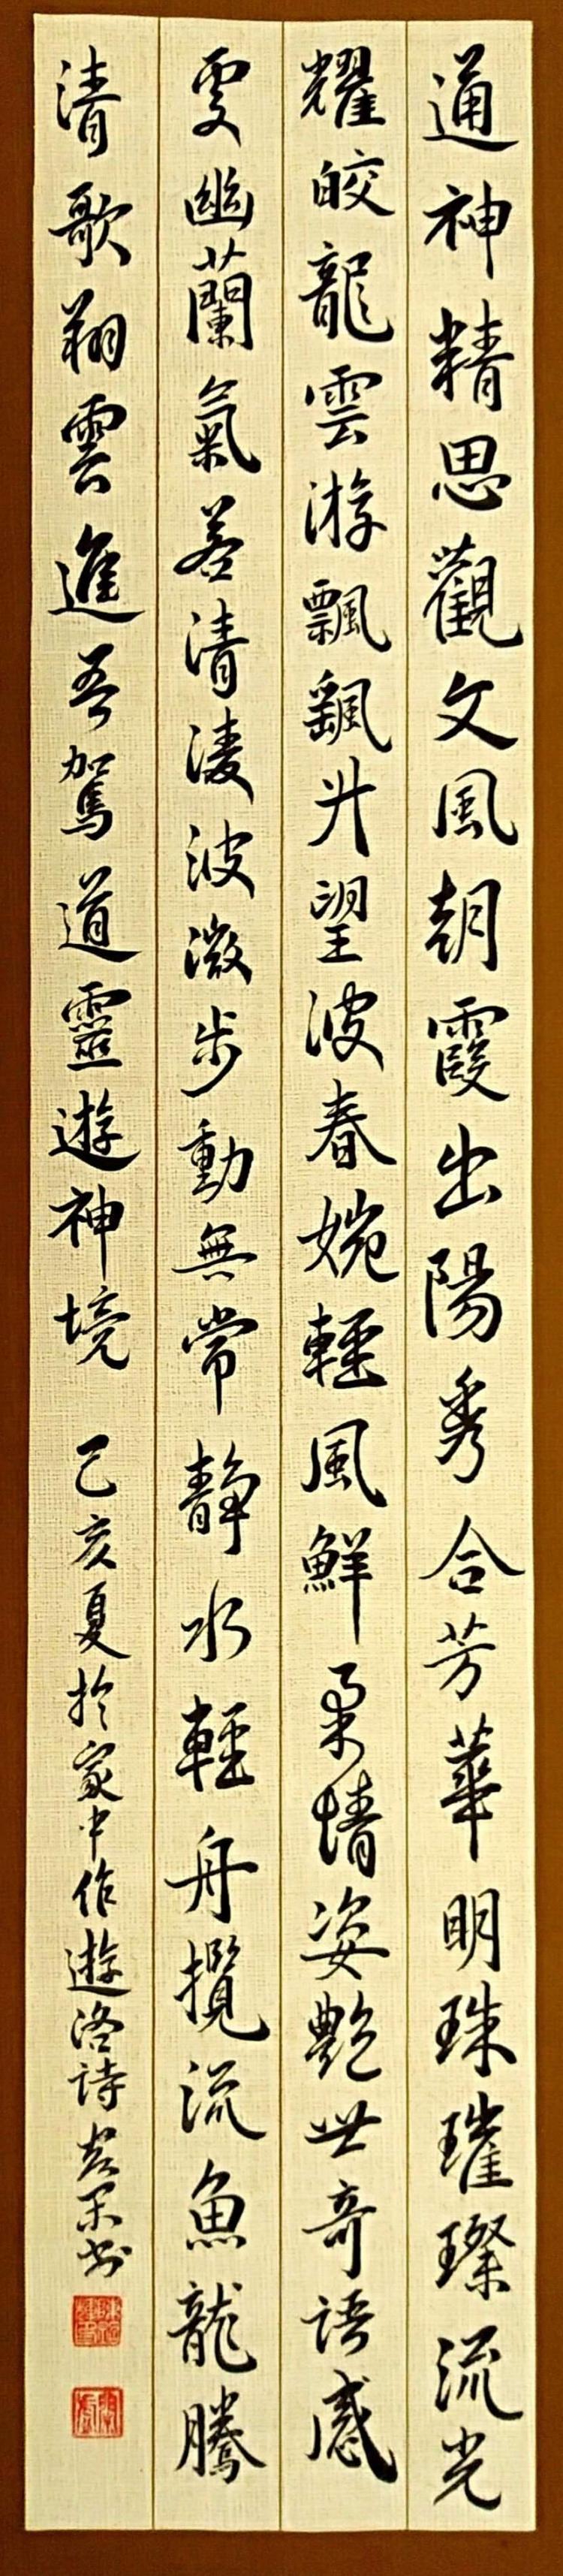 通神精思觀文風朝霞出陽秀合芳華明珠璀璨流光
耀皎龍雲游飄飖升望波春婉輕風鮮柔情姿艷世奇語感
雯幽蘭氣若清淩波微步動無常靜水輕舟攬流魚龍騰
清歌翔雲進吾駕道靈遊神境 己亥夏於家中作遊洛詩